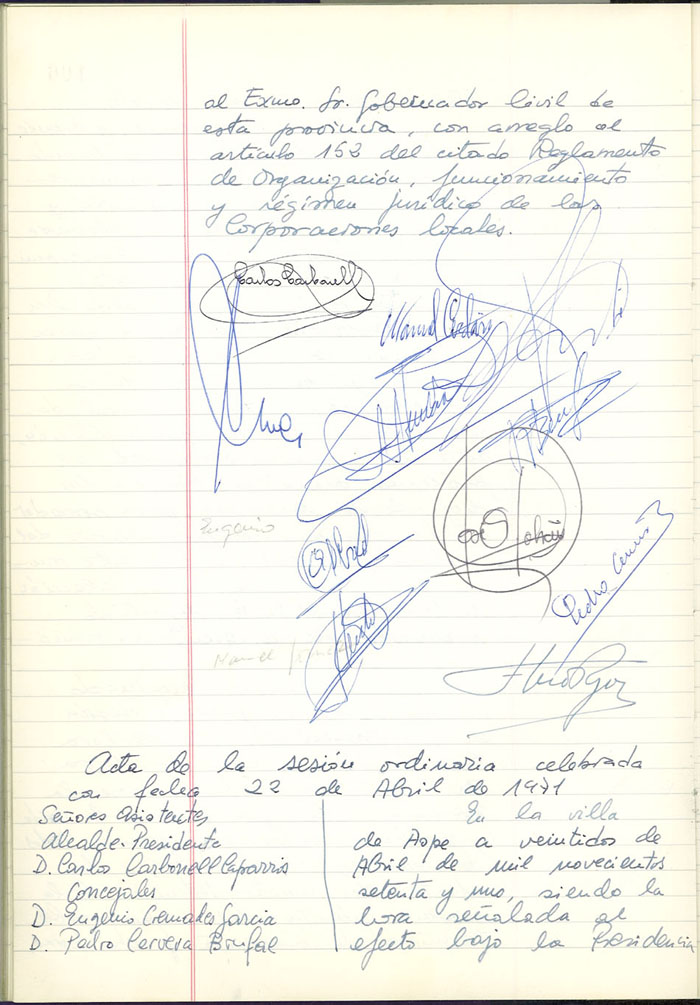 al Exmo. Sr. Gobernador Civil de
esta provincia, con arreglo al
artículo 152 del citado Reglamento
de Organización, funcionamiento
y régimen jurídico de las
Corporaciones locales.
Carlos Carbonell
Manuel
Eugenio
Pedro
Manuel
Acta de la sesión ordinaria celebrada
con fecha 22 de Abril de 1971
Señores asistentes
Alcalde-Presidente
D. Carlos Carbonell Caparrós
Concejales
D. Eugenio Cremades García
D. Pedro Cervera Brufal
En la villa
de Aspe a veintidos de
Abril de mil novecientos
setenta y uno, siendo la
hora señalada al
efecto bajo la Presidencia